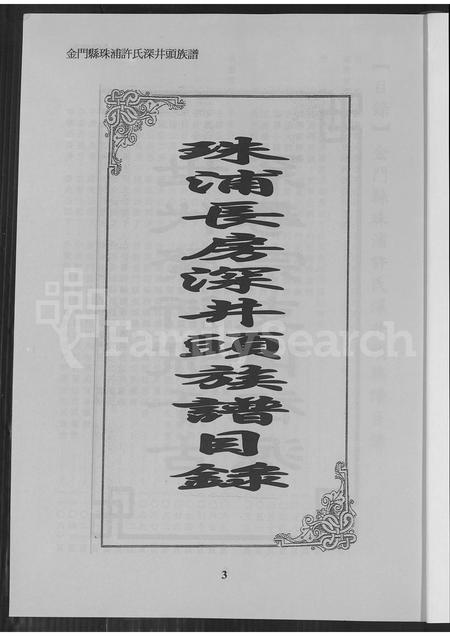 金門縣珠浦許氏深井頭族譜
珠浦長房深井頭族譜目錄
FamilySearch
3